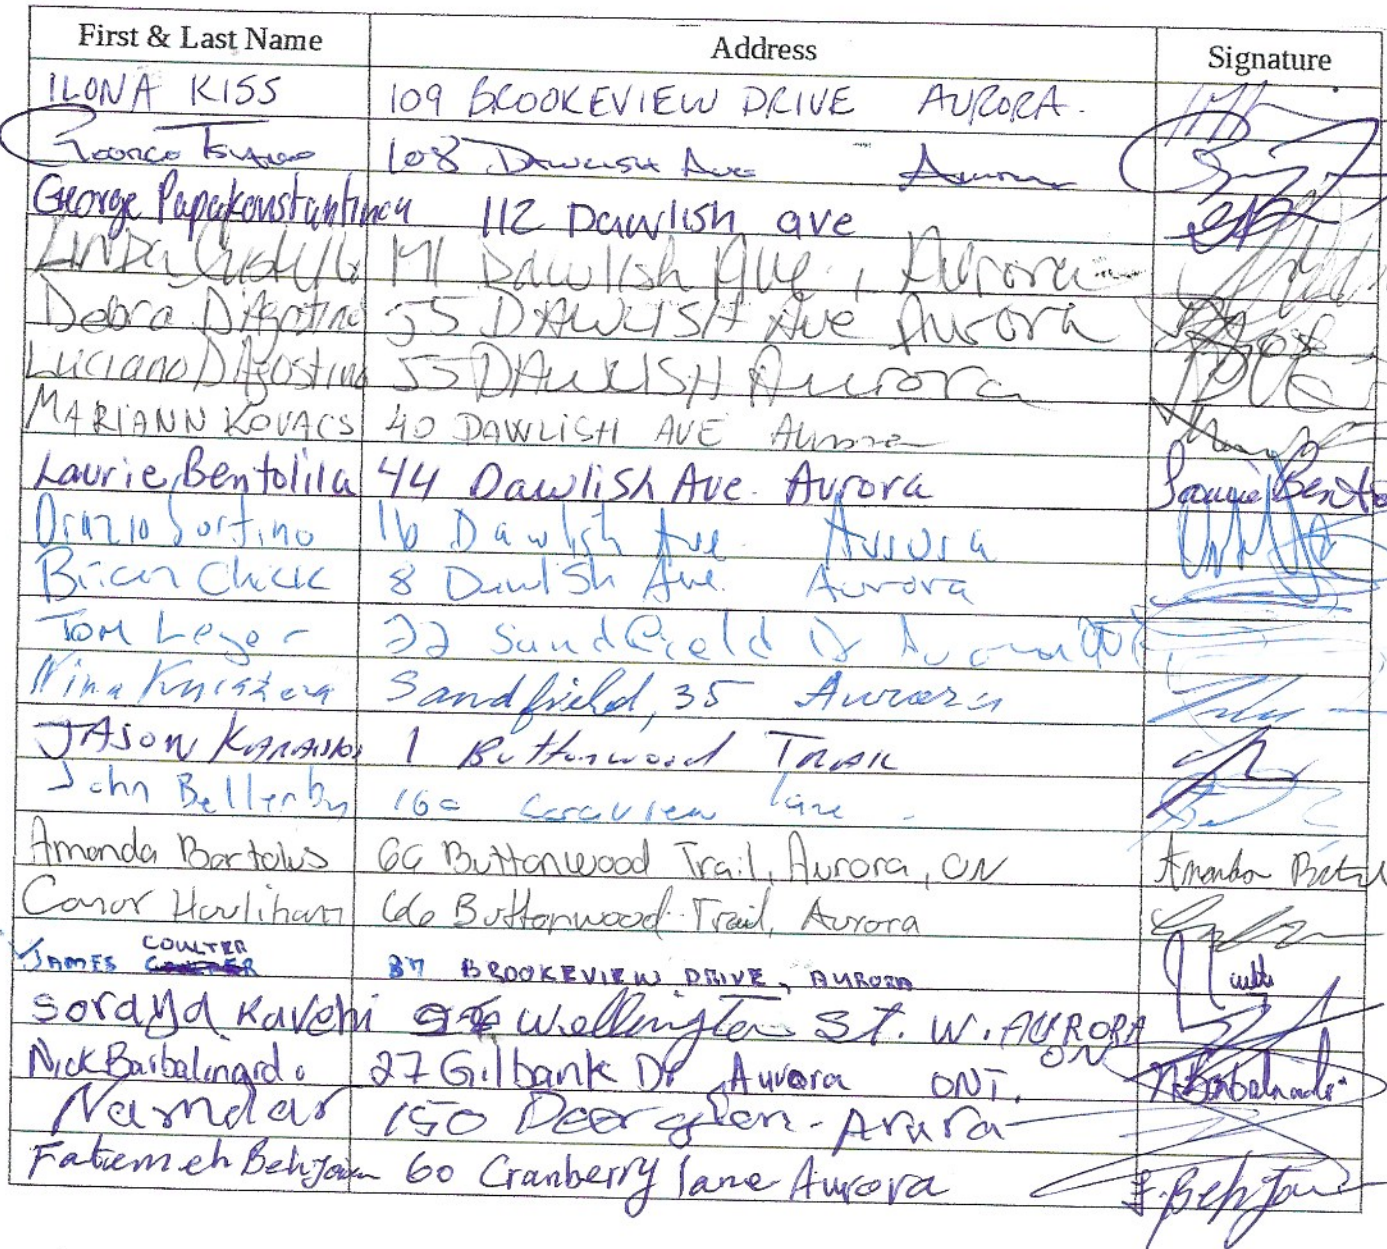 First & Last Name Address Signature
ILONA KISS 109 BROOKEVIEW DRIVE AURORA.
108 Dawlish Ave Aurora
George Papakonstantinou 112 Dawlish ave
LINDA Dawlish Ave, Aurora
Debra D'Agostino 55 DAWLISH Ave Aurora
Luciano D'Agostino 55 DAWLISH Aurora
MARIANN KOVACS 40 DAWLISH AVE Aurora
Laurie Bentolila 44 Dawlish Ave. Aurora Laurie Bento
Orazio Sortino 16 Dawlish Ave Aurora
Brian Chick 8 Dawlish Ave. Aurora
Tom Leger 22 Sandfield Dr Aurora
Nina Sandfield, 35 Aurora
JASON 1 Buttonwood TRAIL
John Bellenby
Amanda Bartolus 66 Buttonwood Trail, Aurora, ON Amanda
Conor Houlihan 66 Buttonwood Trail, Aurora
COULTER
JAMES 37 BROOKEVIEW DRIVE, AURORA
Soraya Kavehi Wellington St. W. AURORA
ON
Nick Barbalinardo 27 Gilbank Dr Aurora ONT.
Namdar 150 Deerglen - Arura
Fatemeh Behjou 60 Cranberry lane Aurora F. Behjou